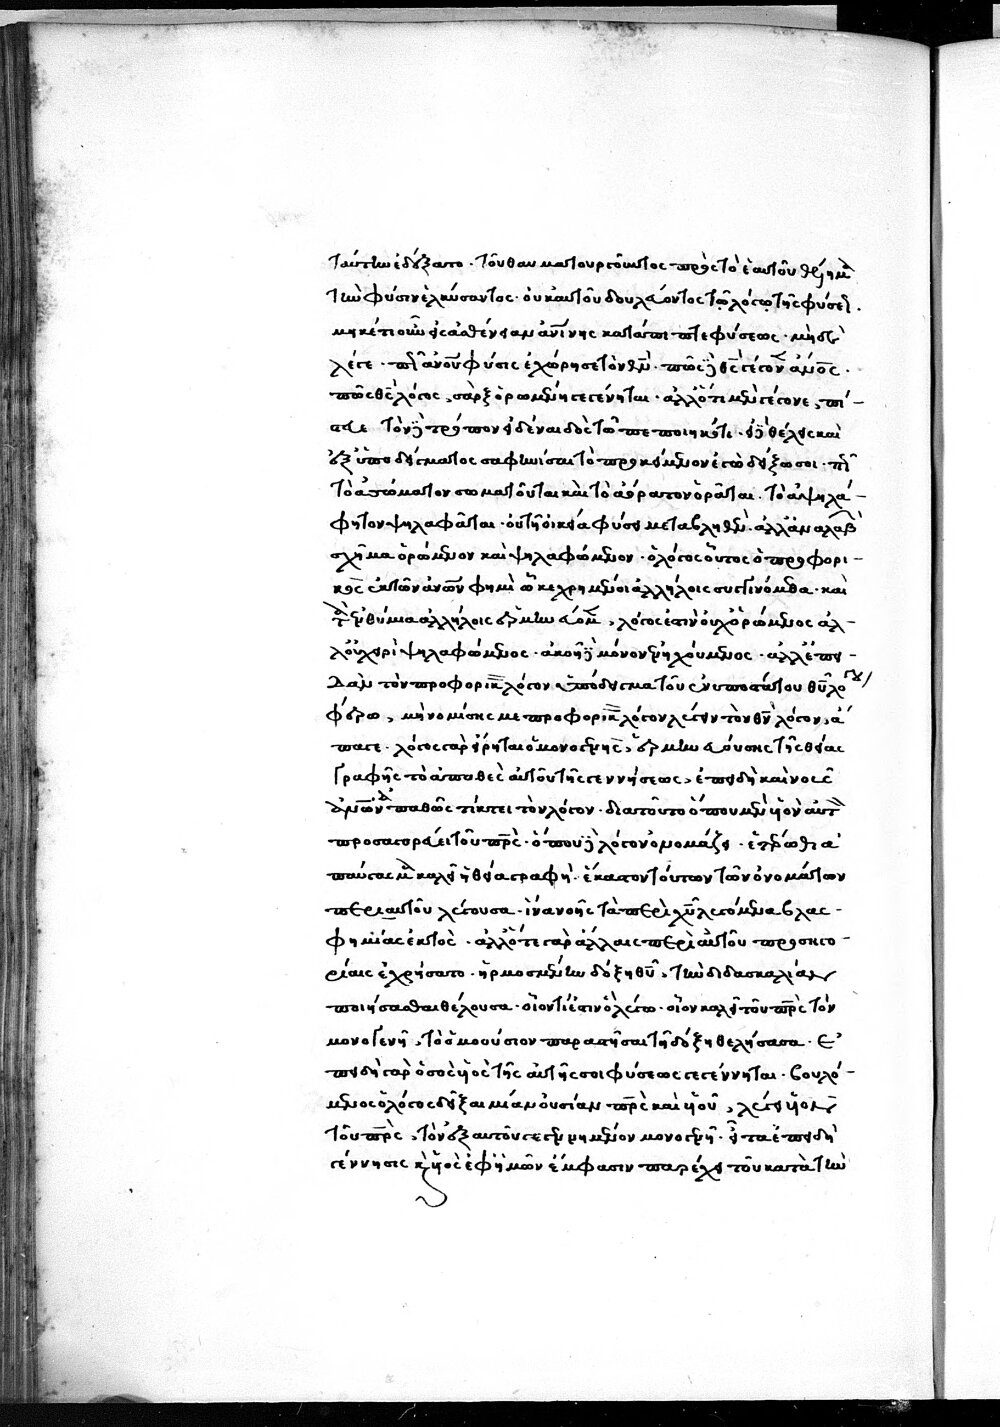 ταύτην ἐδέξατο · τοῦ θαυματουργοῦντος πρὸς τὸ ἑαυτοῦ θέλημα
τὴν φύσιν ἑλκύσαντος · οὐκ αὐτοῦ δουλεύοντος τῷ λόγῳ τῆς φύσεως .
μηκέτι οὖν εἰς ἀσθένειαν κατάπιπτε φύσεως · μὴ δὲ
λέγε · ἀνου φύσις ἐχώρησε τὸν θν · πῶς δὲ θς γέγονεν ἄνος ·
πῶς θς λόγος, σὰρξ ὁρωμένη γεγένηται · ἀλλ' ὅτι μὲν γέγονε, πί-
στευε τὸν δὲ τρόπον εἰδέναι δὸς τῷ πεποιηκότι · εἰ δὲ θέλεις καὶ
ἐξ ὑποδείγματος σαφηνίσαι τὸ προκείμενον ἐγὼ δείξω σοι · πῶς
τὸ ἀσώματον σωματοῦται καὶ τὸ ἀόρατον ὁρᾶται · τὸ ἀψηλά-
φητον ψηλαφᾶται · οὐ τῇ οἰκείᾳ φύσει μεταβληθὲν · ἀλλ' ἀναλαβὸν
σχῆμα ὁρώμενον καὶ ψηλαφώμενον · ὁ λόγος οὗτος ὁ προφορι-
κὸς ὁ τῶν ἀνων φημὶ ᾧ κεχρημένοι ἀλλήλοις συγγινόμεθα · καὶ
τὰ ἐνθύμια ἀλλήλοις , λόγος ἐστὶν οὐχ ὁρώμενος ἀλ-
λ' οὐ χερὶ ψηλαφώμενος · ἀκοῇ δὲ μόνον ἐνηχούμενος · ἀλλ' ἐπει-
δὰν τὸν προφορικὸν λόγον ὑπόδειγμα τοῦ ἐνυποστάτου θυ λόγου
φέρω, μὴ νομίσῃς με προφορικὸν λόγον λέγειν τὸν θν λόγον, ἄ
παγε · λόγος γὰρ εἴρηται ὁ μονογενὴς, τῆς θείας
γραφῆς τὸ ἀπαθὲς αὐτοῦ τῆς γεννήσεως, ἐπειδὴ καὶ νοῦς ὁ
ἡμῶν ἀπαθῶς τίκτει τὸν λόγον · διατοῦτο ὅπου μὲν υἱὸν αὐτὸν
προσαγορεύει τοῦ πρς · ὅπου δὲ λόγον ὀνομάζει · ἑτέρωθι
καλεῖ ἡ θεία γραφὴ · ἕκαστον τούτων τῶν ὀνομάτων
περὶ αὐτοῦ λέγουσα · ἵνα νοῇς τὰ περὶ χυ λεγόμενα βλασ-
φημίας ἐκτὸς · ἀλλ' ὅτι γὰρ ἄλλαις περὶ αὐτοῦ προσηγο-
ρίαις ἐχρήσατο · ἡρμοσμένην δόξῃ θυ, τὴν διδασκαλίαν
ποιήσασθαι θέλουσα · οἷόν τί ἐστιν ὃ λέγω · υἱὸν καλεῖ τοῦ πρς τὸν
μονογενῆ, τὸ ὁμοούσιον παραστῆσαι τῇ δόξῃ θελήσασα · Ἐ
πειδὴ γὰρ ὁ σὸς υἱὸς τῆς αὐτῆς σοι φύσεως γεγέννηται · βουλό-
μενος ὁ λόγος δεῖξαι μίαν οὐσίαν πρς καὶ υἱοῦ, λέγει υἱὸν
τοῦ πρς, τὸν ἐξ αὐτοῦ γεγεννημένον μονογενῆ · εἶτα ἐπειδὴ
γέννησις καὶ υἱὸς ἐφ' ἡμῶν ἔμφασιν παρέχει τοῦ κατὰ τὴν